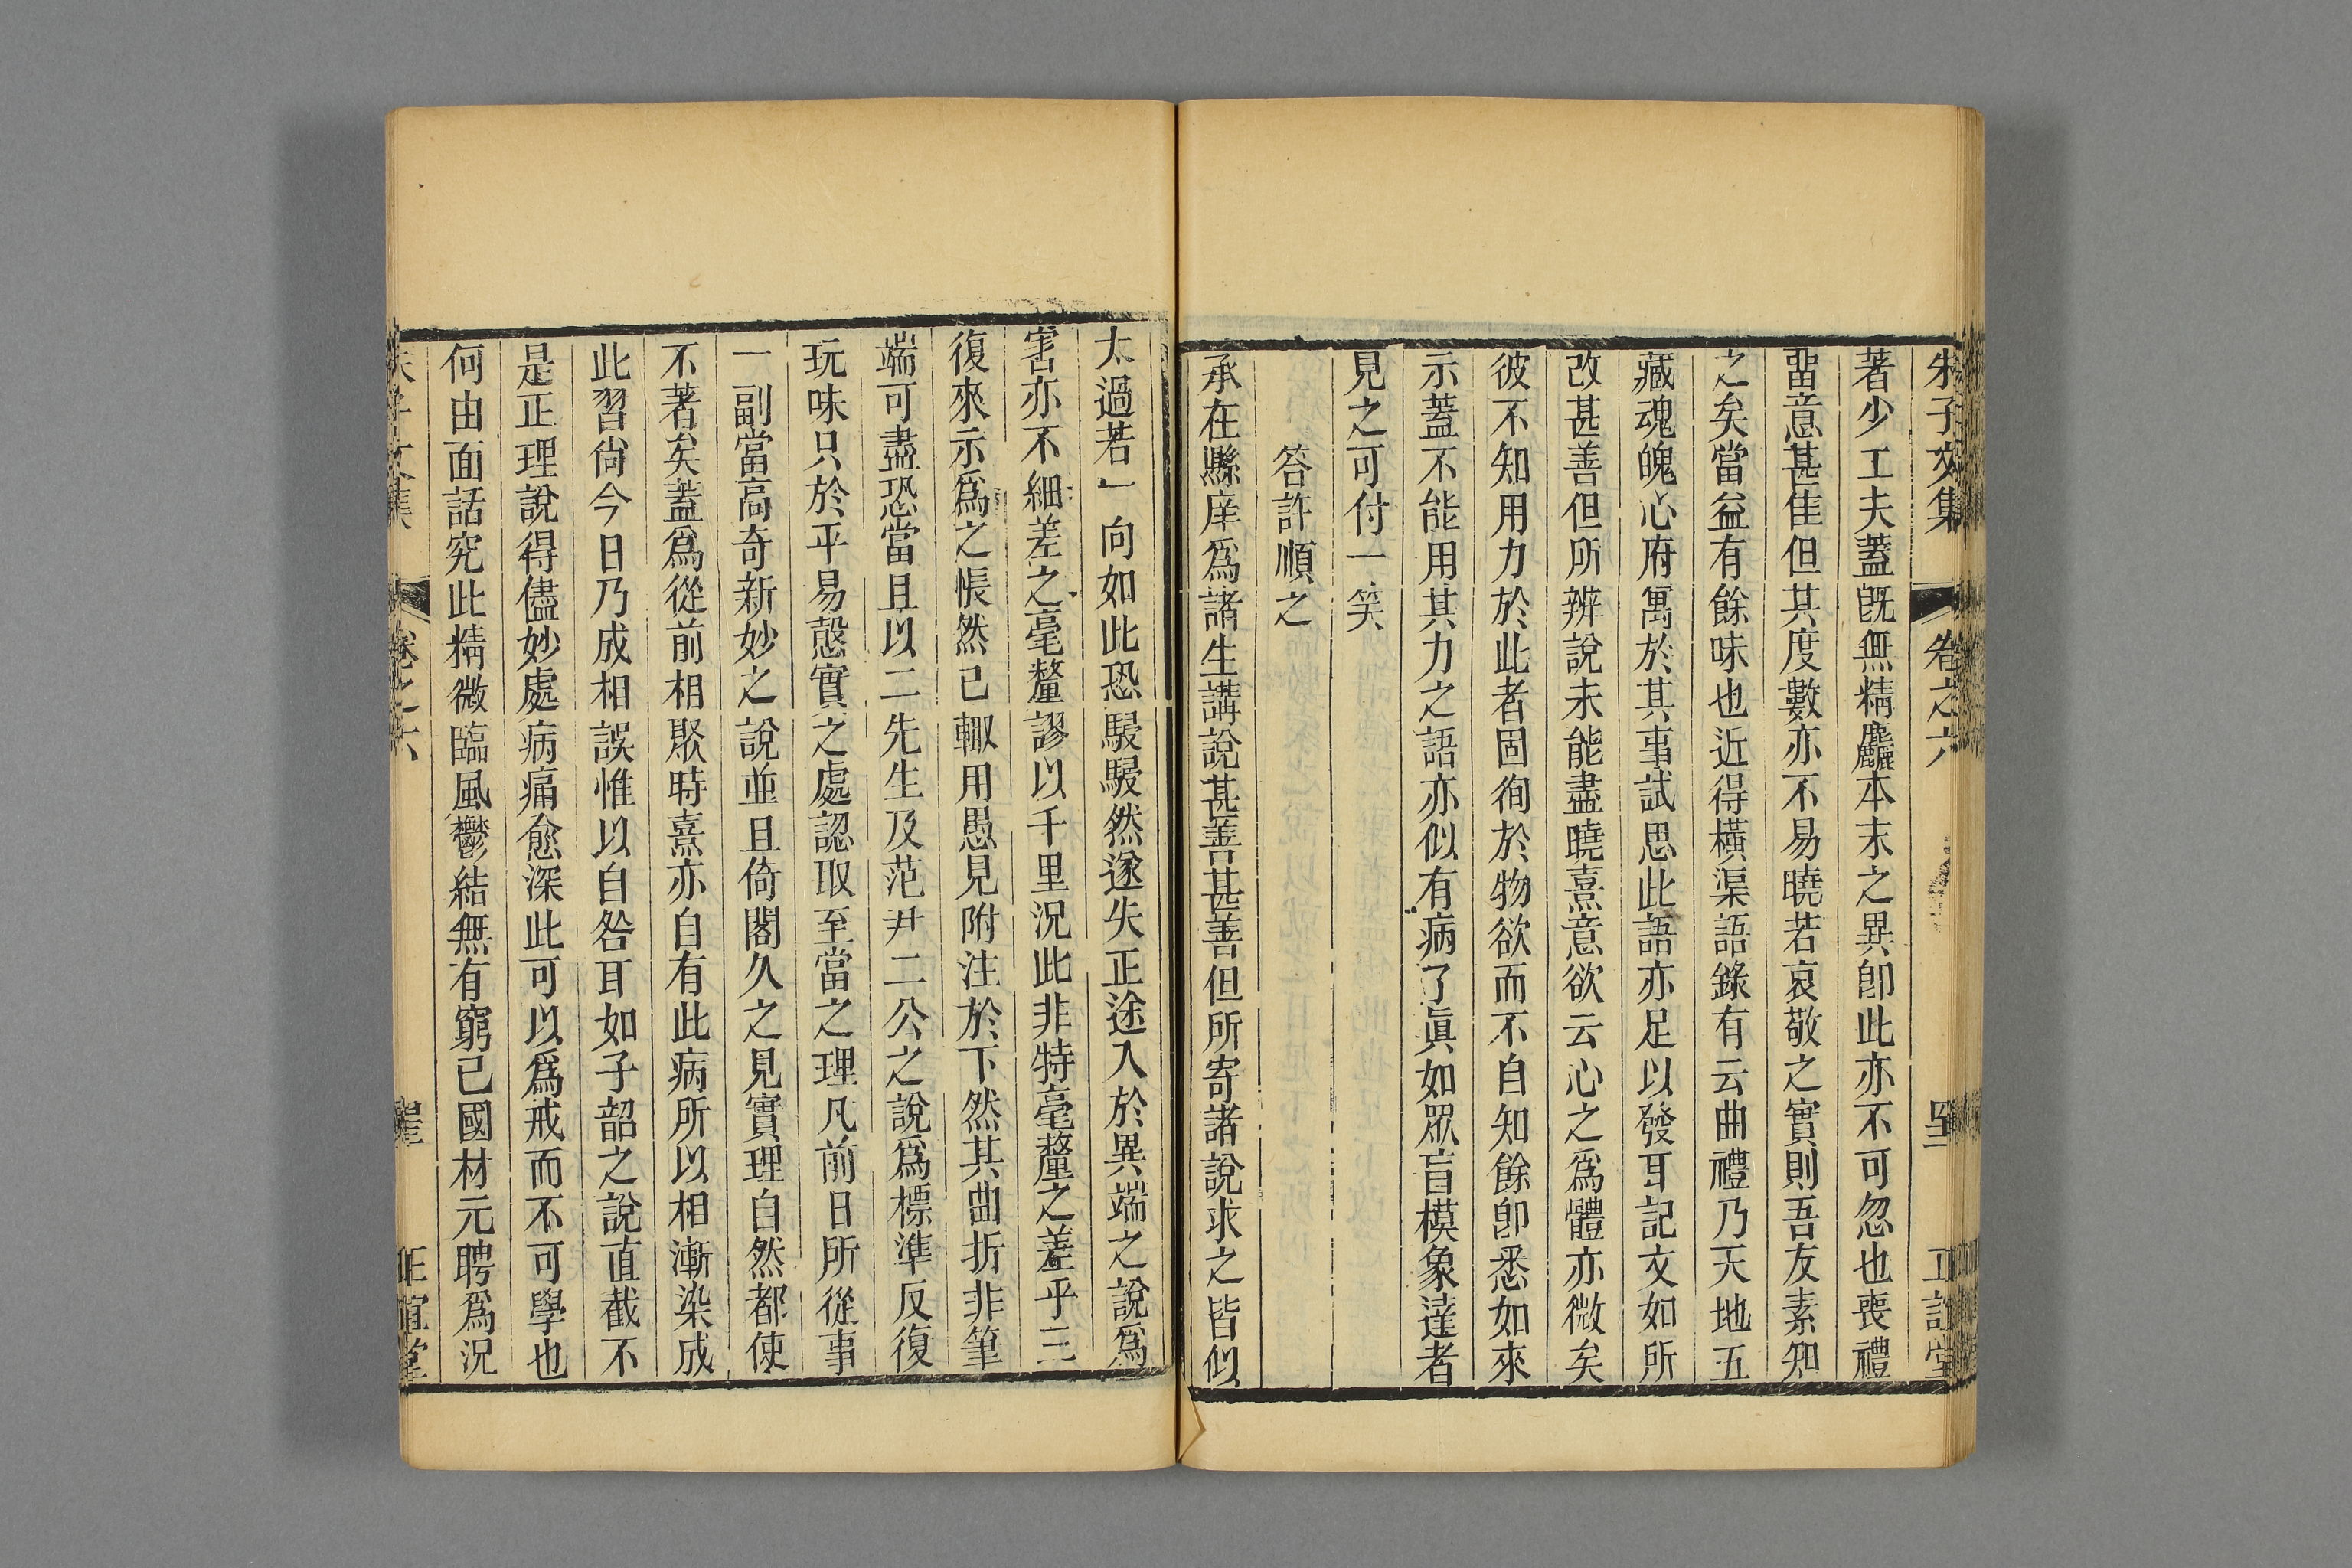 朱子文集 卷之六 正誼堂
著少工夫蓋既無精麤本末之異卽此亦不可忽也喪禮
畱意甚佳但其度數亦不易曉若哀敬之實則吾友素知
之矣當益有餘味也近得橫渠語錄有云曲禮乃天地五
藏魂魄心府寓於其事試思此語亦足以發耳記文如所
改甚善但所辨說未能盡曉熹意欲云心之爲體亦微矣
彼不知用力於此者固徇於物欲而不自知餘卽悉如來
示蓋不能用其力之語亦似有病了眞如眾盲模象達者
見之可付一笑
答許順之
承在縣庠爲諸生講說甚善甚善但所寄諸說求之皆似
太過若一向如此恐駸駸然遂失正途入於異端之說爲
害亦不細差之毫釐謬以千里況此非特毫釐之差乎三
復來示爲之悵然已輙用愚見附注於下然其曲折非筆
端可盡恐當且以二先生及范尹二公之說爲標準反復
玩味只於平易慤實之處認取至當之理凡前日所從事
一副當高奇新妙之說並且倚閣久之見實理自然都使
不著矣蓋爲從前相聚時熹亦自有此病所以相漸染成
此習尙今日乃成相誤惟以自咎耳如子韶之說直截不
是正理說得儘妙處病痛愈深此可以爲戒而不可學也
何由面話究此精微臨風鬱結無有窮已國材元聘爲況
朱子文集 卷之六 正誼堂